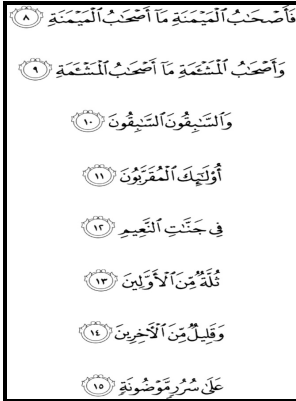 فَأَصْحَٰبُ ٱلْمَيْمَنَةِ مَآ أَصْحَٰبُ ٱلْمَيْمَنَةِ ٨
وَأَصْحَٰبُ ٱلْمَشْـَٔمَةِ مَآ أَصْحَٰبُ ٱلْمَشْـَٔمَةِ ٩
وَٱلسَّٰبِقُونَ ٱلسَّٰبِقُونَ ١٠
أُو۟لَٰٓئِكَ ٱلْمُقَرَّبُونَ ١١
فِى جَنَّٰتِ ٱلنَّعِيمِ ١٢
ثُلَّةٌ مِّنَ ٱلْأَوَّلِينَ ١٣
وَقَلِيلٌ مِّنَ ٱلْءَاخِرِينَ ١٤
عَلَىٰ سُرُرٍ مَّوْضُونَةٍ ١٥